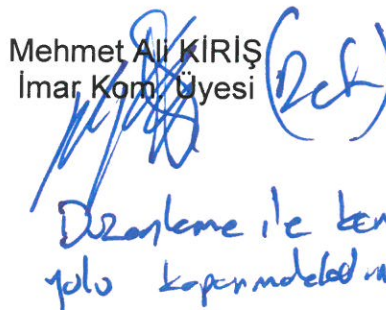 Mehmet Ali KİRİŞ
İmar Kom. Üyesi (Ret)
Düzenleme ile
yolu kapanmaktadı